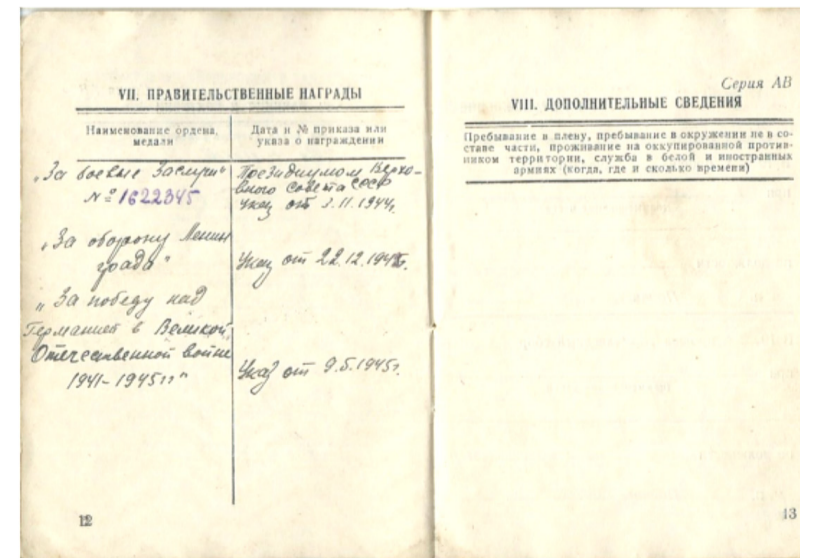 VII. ПРАВИТЕЛЬСТВЕННЫЕ НАГРАДЫ
Наименование ордена, медали
Дата и № приказа или указа о награждении
„За боевые Заслуги"
№ 1622345
Президиумом Верхо-
вного Совета СССР
Указ от 3.11.1944г.
„За оборону Ленин
града"
Указ от 22.12.1942г.
„За победу над
Германией в Великой
Отечественной войне
1941-1945гг"
Указ от 9.5.1945г.
12
Серия АВ
VIII. ДОПОЛНИТЕЛЬНЫЕ СВЕДЕНИЯ
Пребывание в плену, пребывание в окружении не в со-
ставе части, проживание на оккупированной против-
ником территории, служба в белой и иностранных
армиях (когда, где и сколько времени)
13